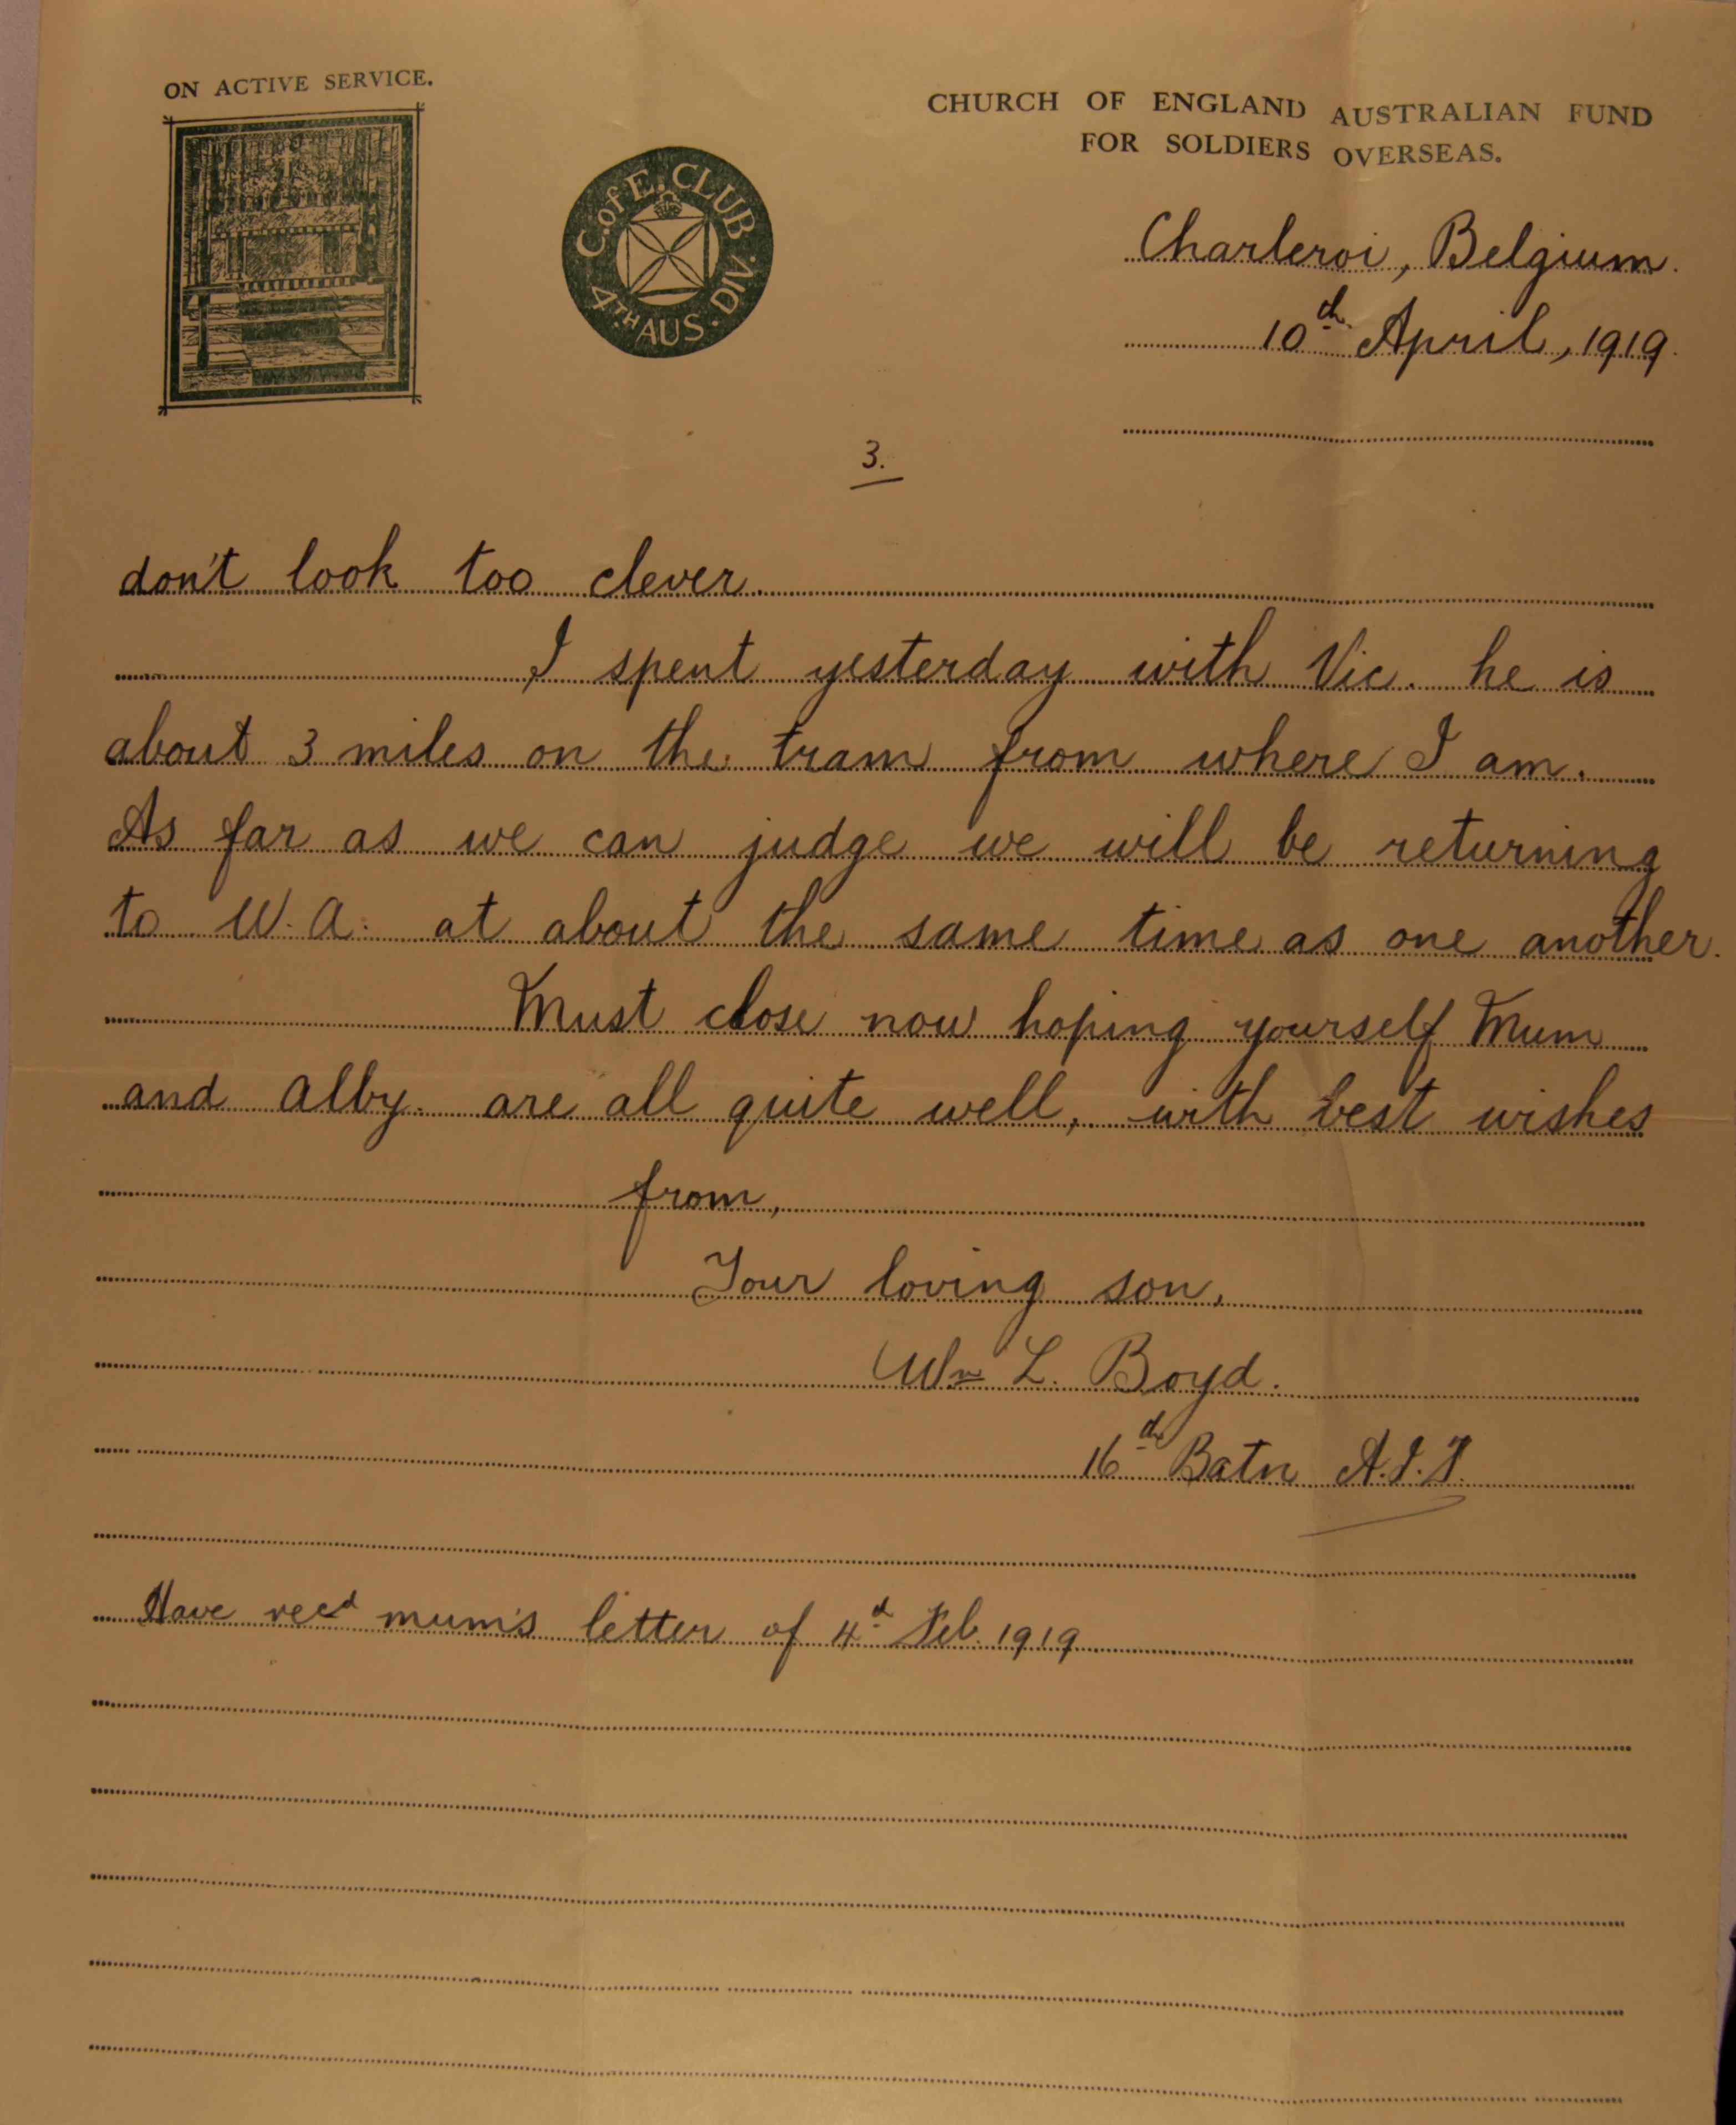 ON ACTIVE SERVICE.
C. OF E. CLUB
4TH AUS. DIV.
CHURCH OF ENGLAND AUSTRALIAN FUND
FOR SOLDIERS OVERSEAS.
Charleroi, Belgium.
10th April, 1919.
3.
don't look too clever.
I spent yesterday with Vic. he is
about 3 miles on the tram from where I am.
As far as we can judge we will be returning
to W.A. at about the same time as one another.
Must close now hoping yourself Mum
and Alby. are all quite well, with best wishes
from,
Your loving son,
Wm L. Boyd.
16th Batn A.I.F.
Have recd mum's letter of 4th Feb. 1919